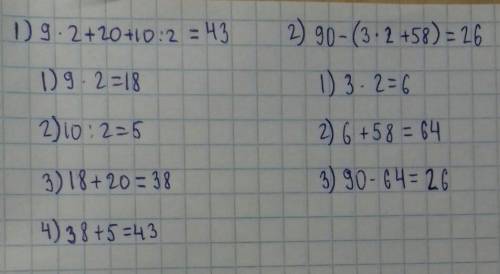 1) 9 · 2 + 20 + 10 : 2 = 43
1) 9 · 2 = 18
2) 10 : 2 = 5
3) 18 + 20 = 38
4) 38 + 5 = 43
2) 90 - (3 · 2 + 58) = 26
1) 3 · 2 = 6
2) 6 + 58 = 64
3) 90 - 64 = 26